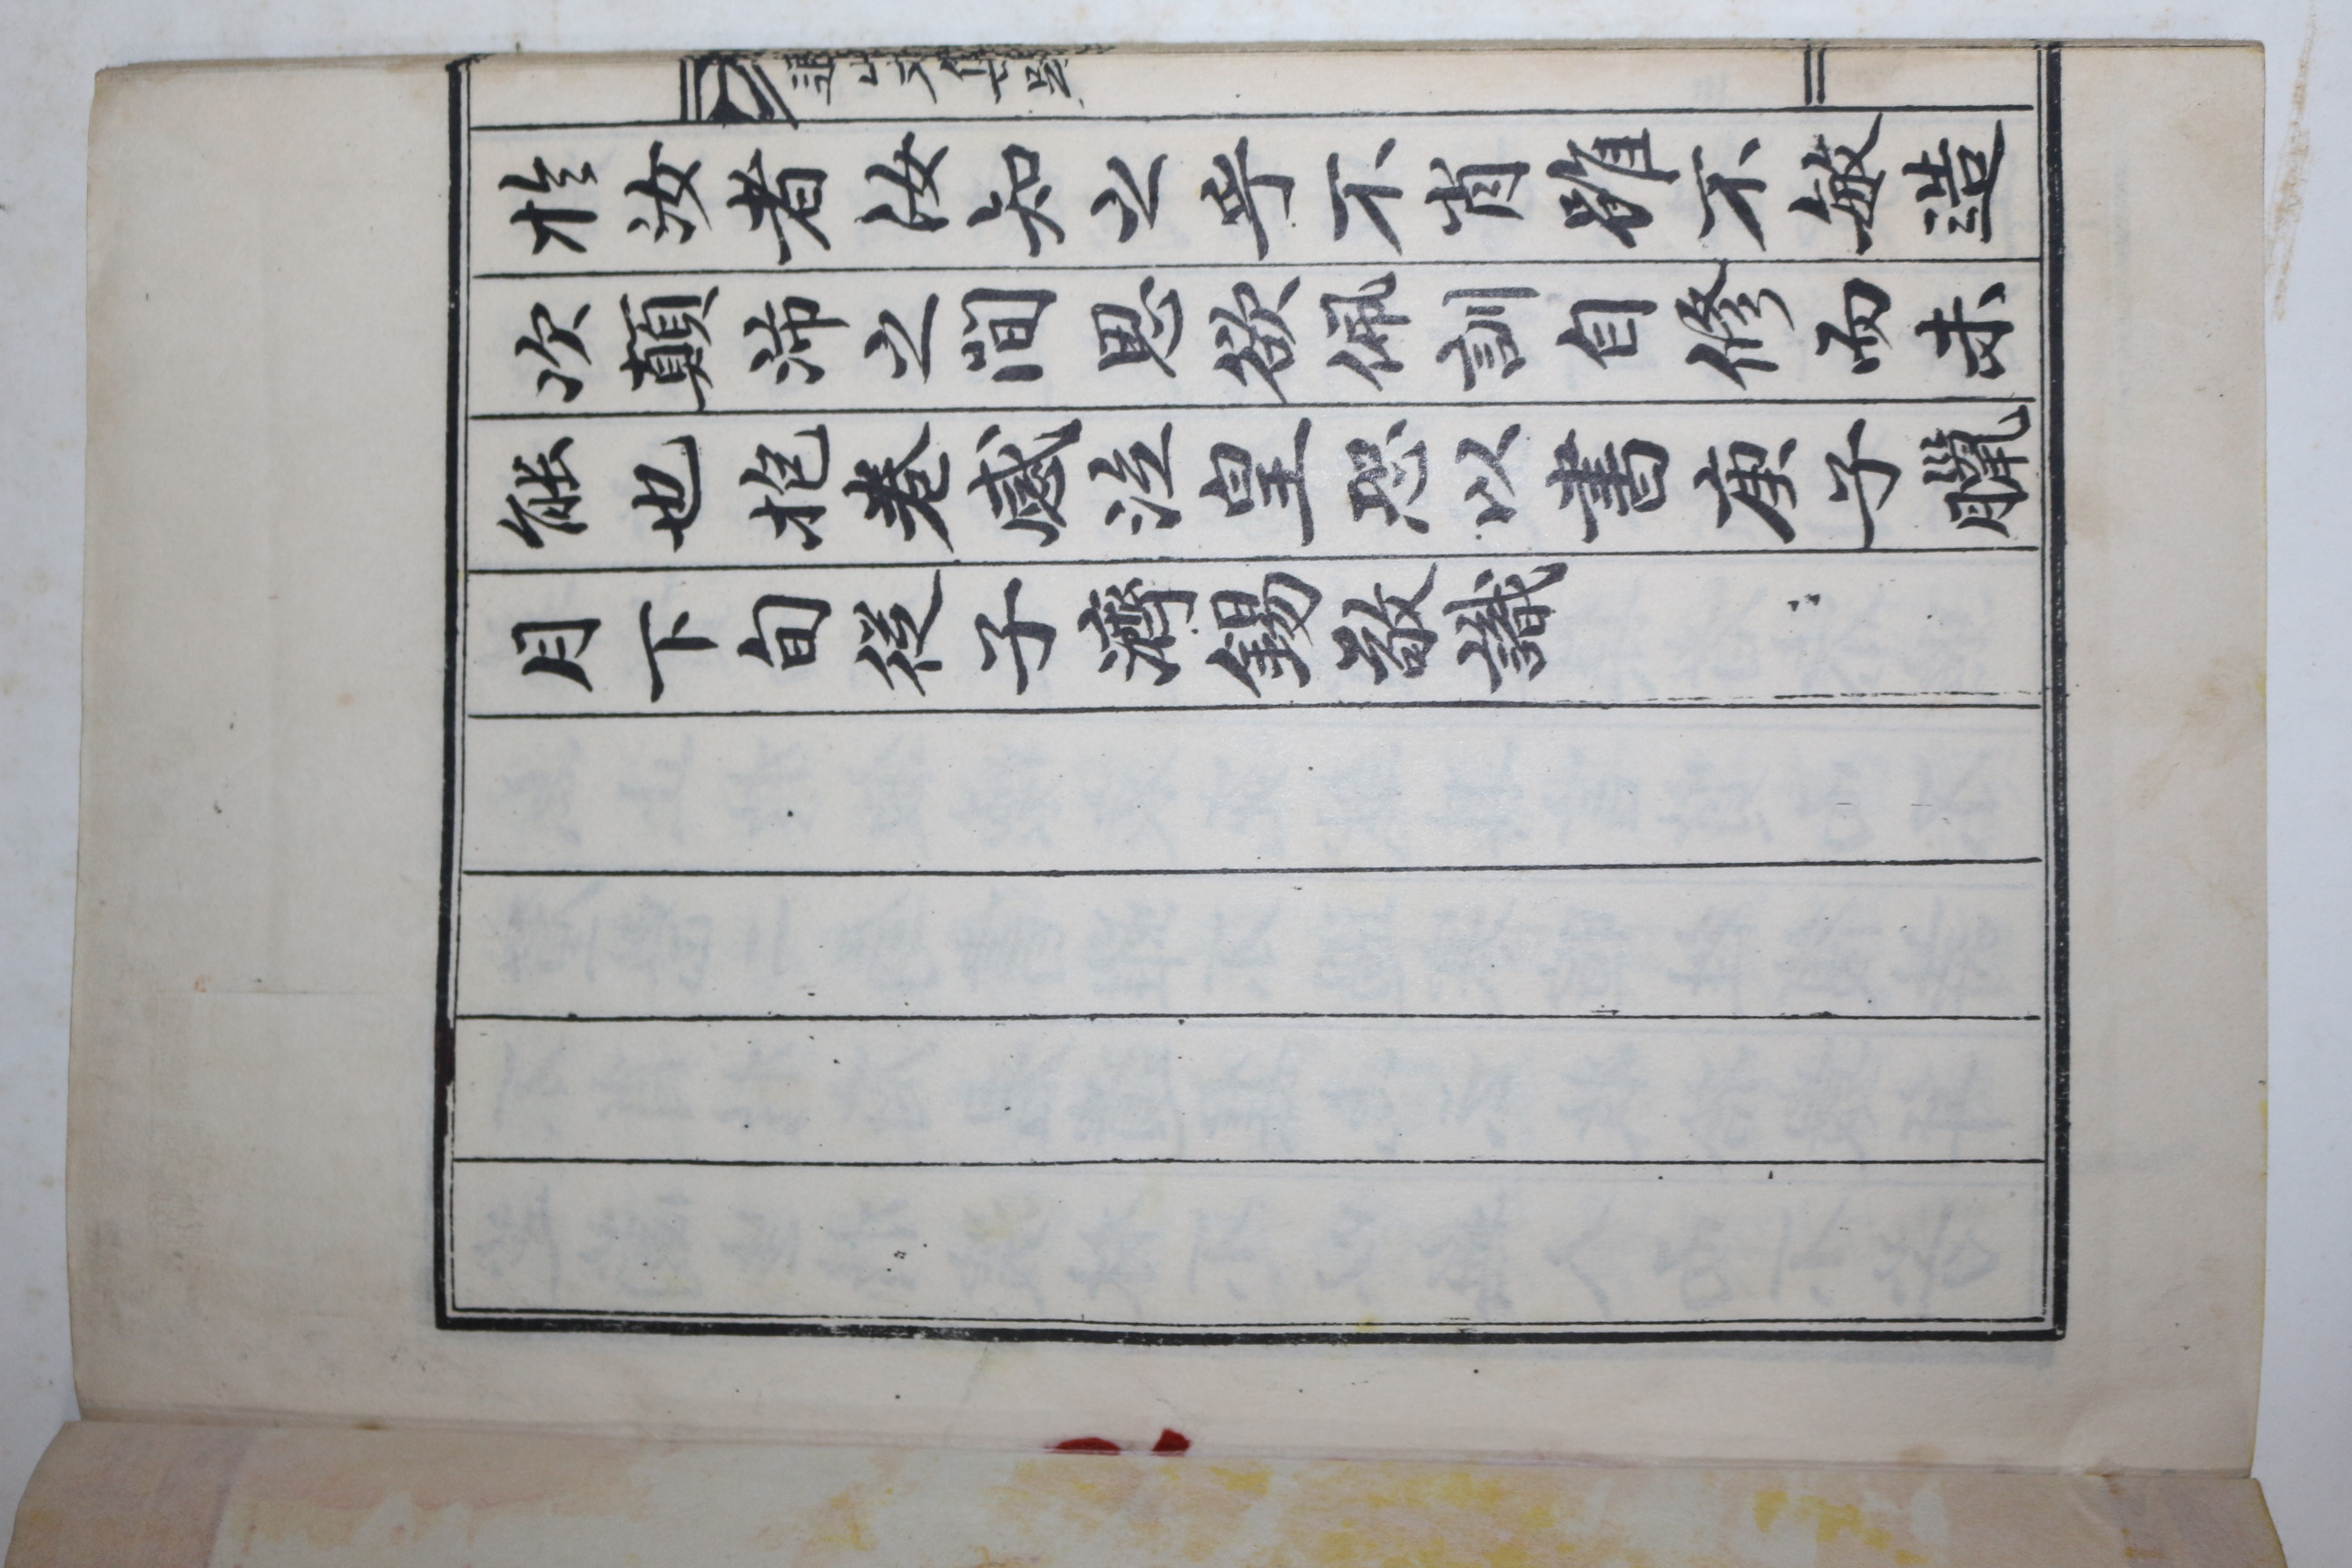 於汝者汝知之乎不肖雖不敏造
次顛沛之間思欲佩訓自修而未
能也抱卷感泣皇恐以書庚子臘
月下旬從子濟錫敬識
山文集